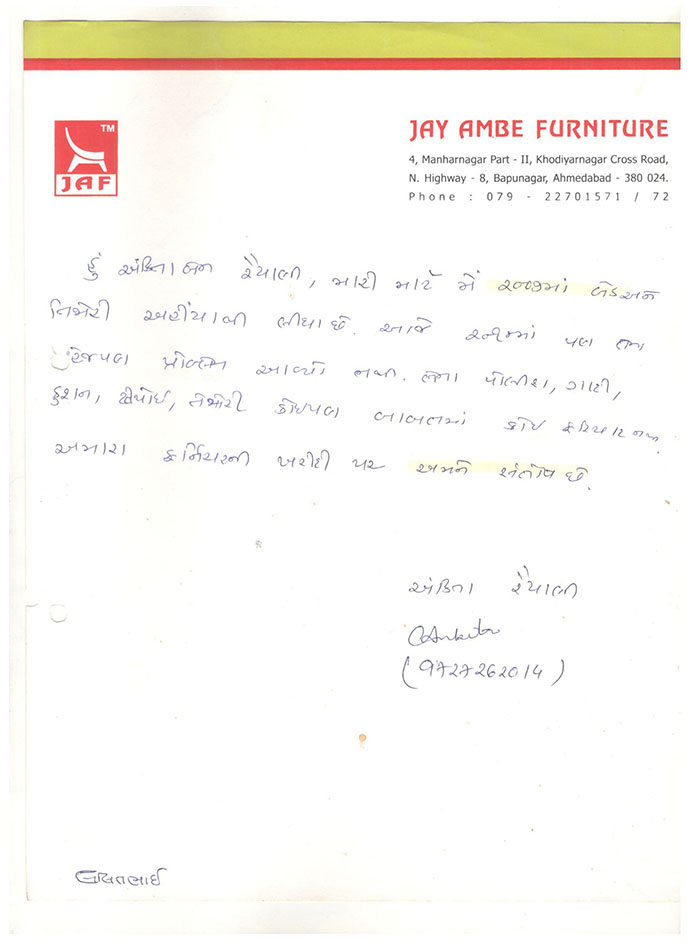 TM
JAF
JAY AMBE FURNITURE
4, Manharnagar Part - II, Khodiyarnagar Cross Road,
N. Highway - 8, Bapunagar, Ahmedabad - 380 024.
Phone : 079 - 22701571 / 72
હું અંકિતાબેન રૈયાણી, મારી માટે મેં ૨૦૦૭માં બેડ અને
તિજોરી લીધા છે. આજે પણ તેમાં
પ્રોબ્લેમ આવ્યો નથી. તેના પોલીશ, ગાદી,
કુશન, ટીપોઈ, તિજોરી કોઇપણ બાબતમાં કોઇ ફરિયાદ નથી.
અમારા ફર્નિચરની ખરીદી પર અમને સંતોષ છે.
અંકિતા રૈયાણી
Ankita
(9727262014)